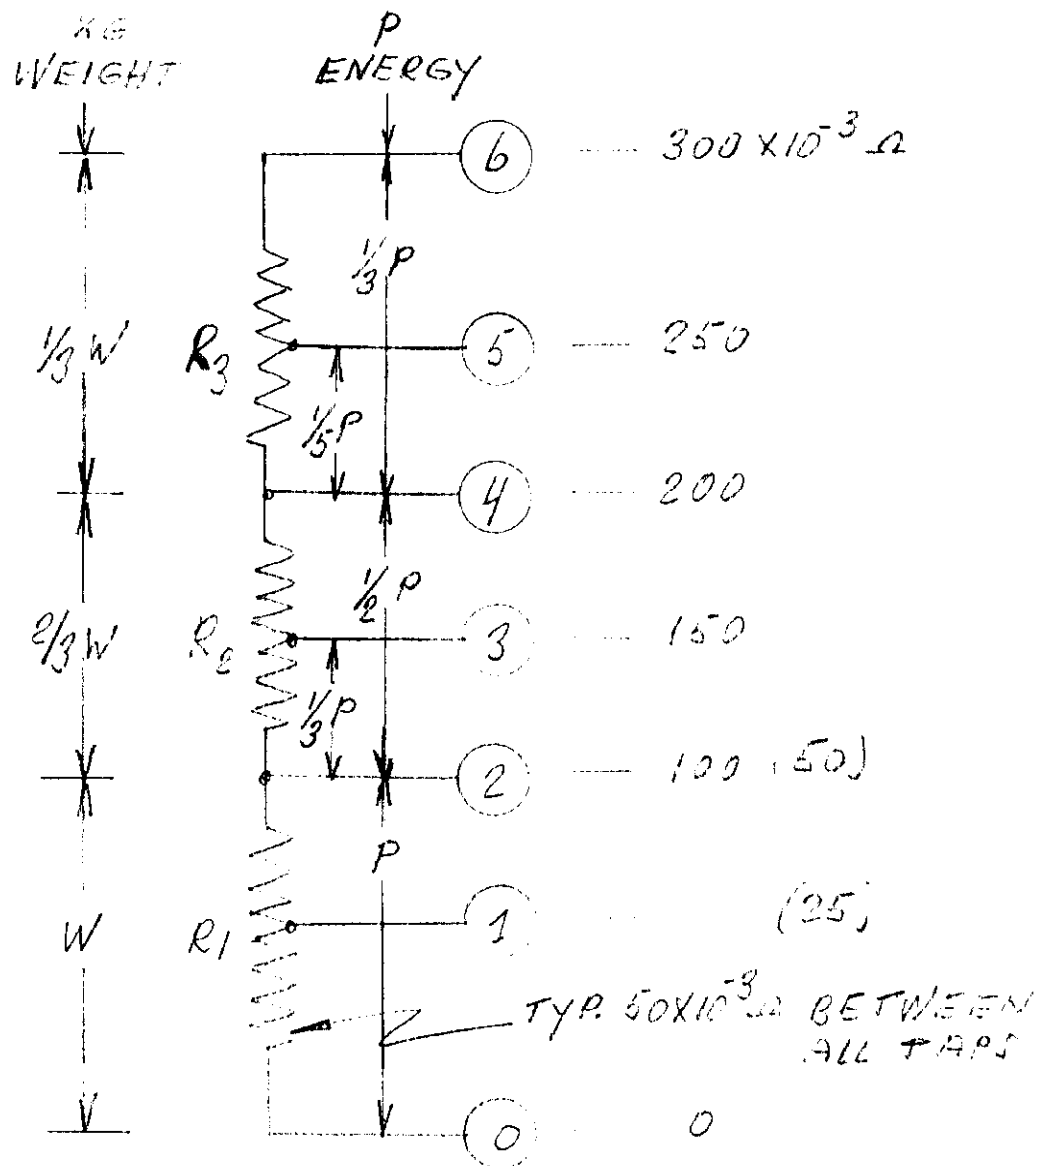 KG
WEIGHT
P
ENERGY
6 300 X10⁻³ Ω
1/3 P
1/3 W
R3
5 250
1/5 P
4 200
1/2 P
2/3 W
R2
3 150
1/3 P
2 100 (50)
P
W
R1
1 (25)
TYP. 50X10⁻³ Ω BETWEEN
ALL TAPS
0 0